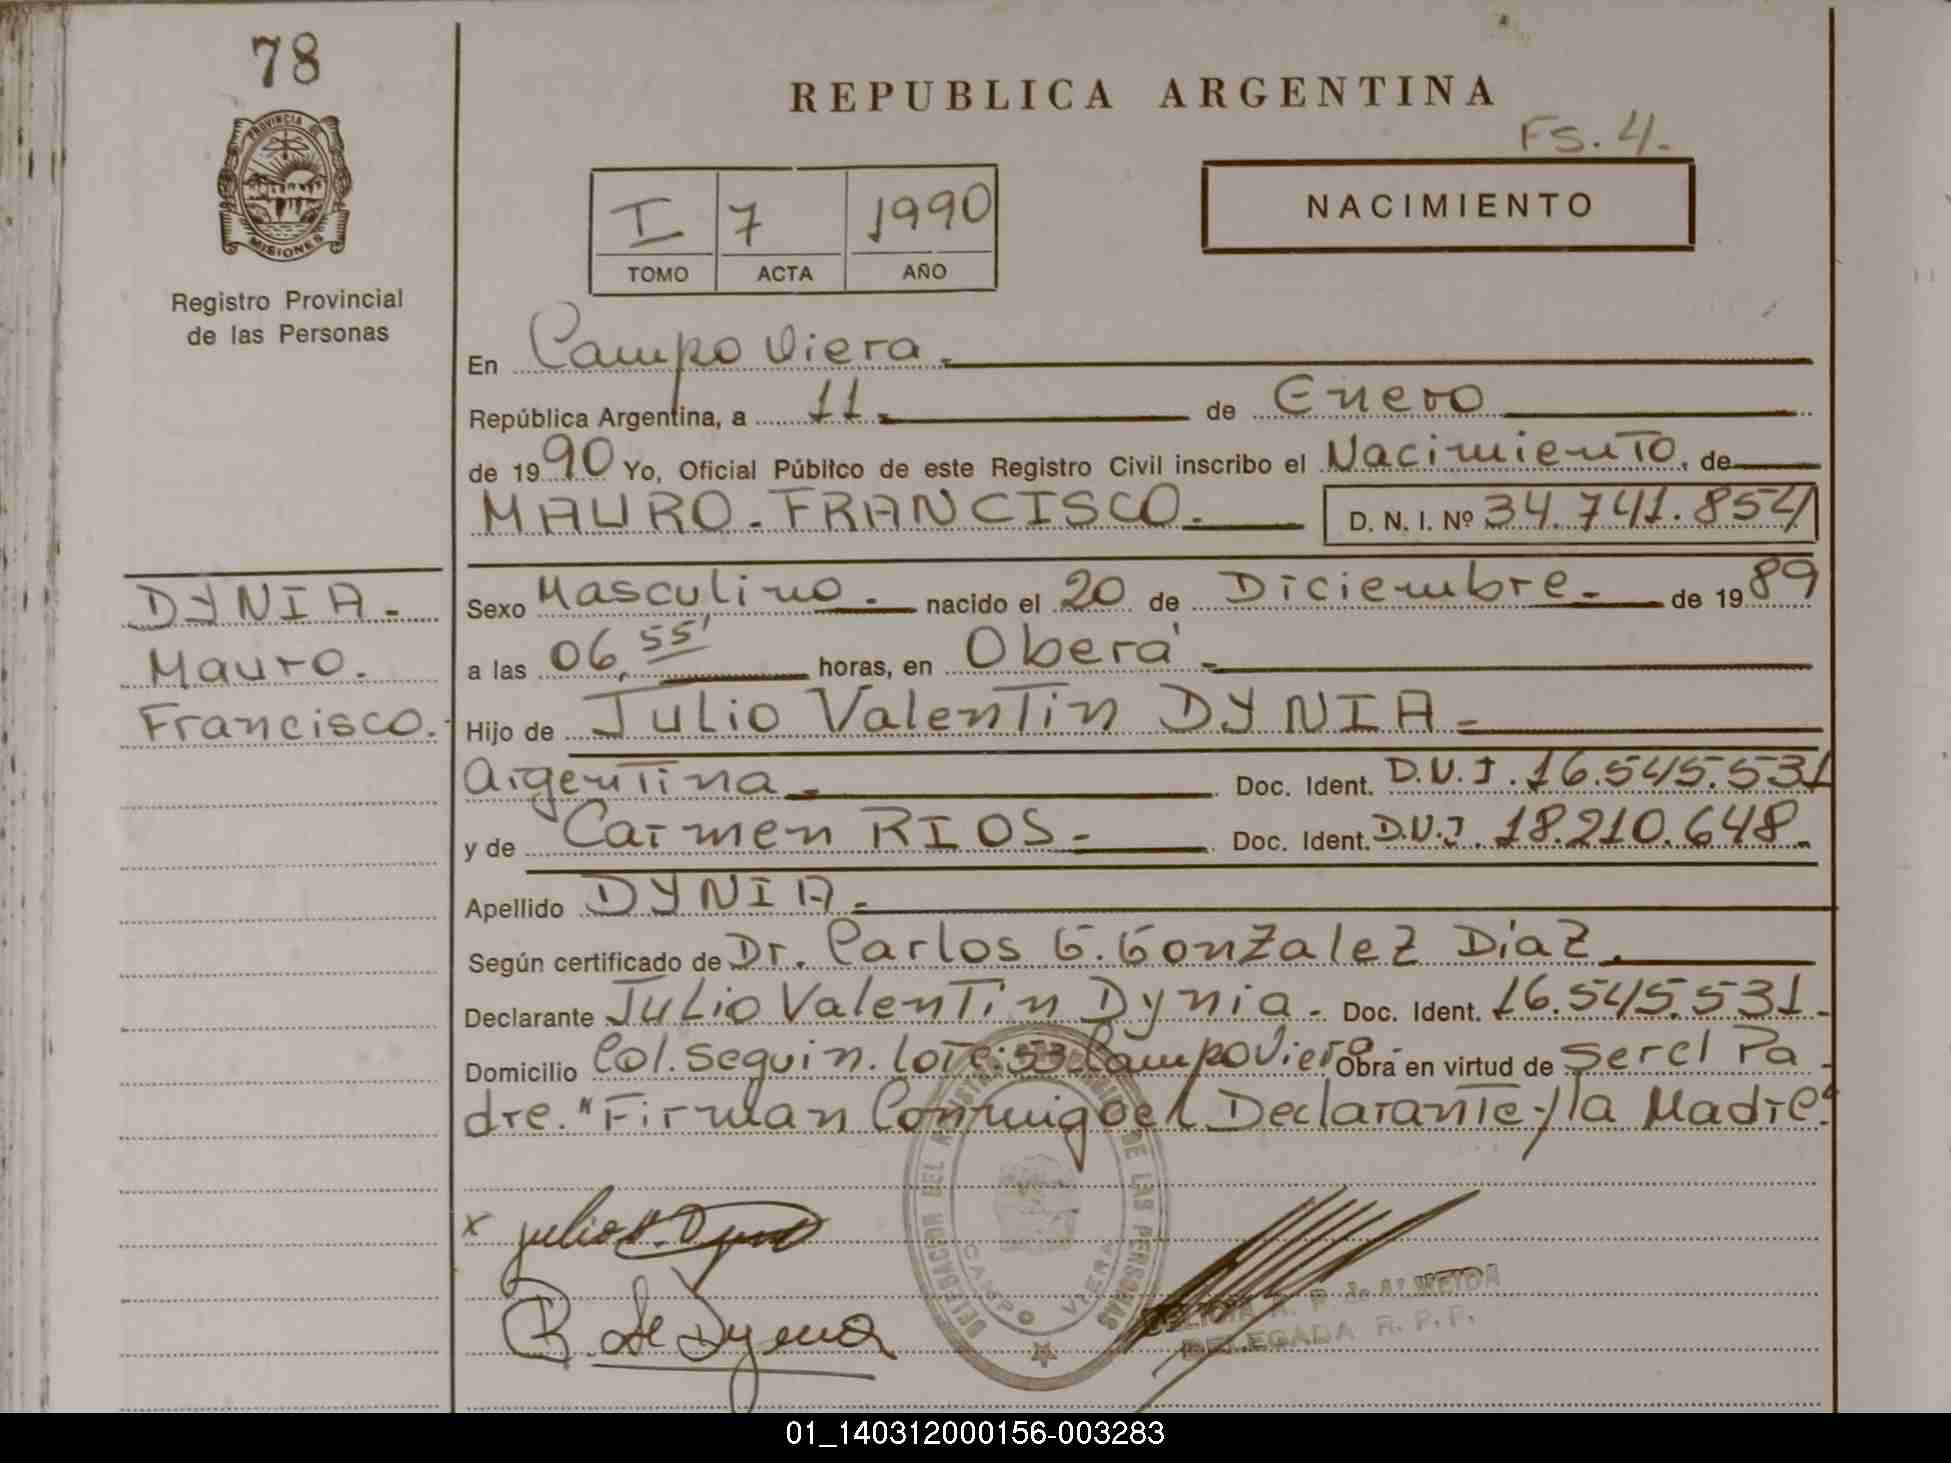 78
PROVINCIA DE
MISIONES
Registro Provincial
de las Personas
REPUBLICA ARGENTINA
FS. 4.
I 7 1990
TOMO ACTA AÑO
NACIMIENTO
En Campo Viera.
República Argentina, a 11 de Enero
de 1990 Yo, Oficial Público de este Registro Civil inscribo el Nacimiento, de
MAURO. FRANCISCO. D. N. I. Nº 34.741.854
DYNIA.
Mauro.
Francisco.
Sexo Masculino. nacido el 20 de Diciembre. de 1989
a las 06,55' horas, en Oberá
Hijo de Julio Valentin DYNIA
Argentina. Doc. Ident. D.N.I. 16.545.531
y de Carmen RIOS Doc. Ident. D.N.I. 18.210.648.
Apellido DYNIA.
Según certificado de Dr. Carlos G. Gonzalez Diaz.
Declarante Julio Valentin Dynia. Doc. Ident. 16.545.531.
Domicilio Col. Seguin. lote: 53 Campo Viera Obra en virtud de Ser el Pa
dre. "Firman Conmigo el Declarante y la Madre"
x Julio V. Dynia
R. de Dynia
CAMPO VIERA
DE LAS PERSONAS
R. P. de ALMEIDA
DELEGADA R. P. P.
01_140312000156-003283